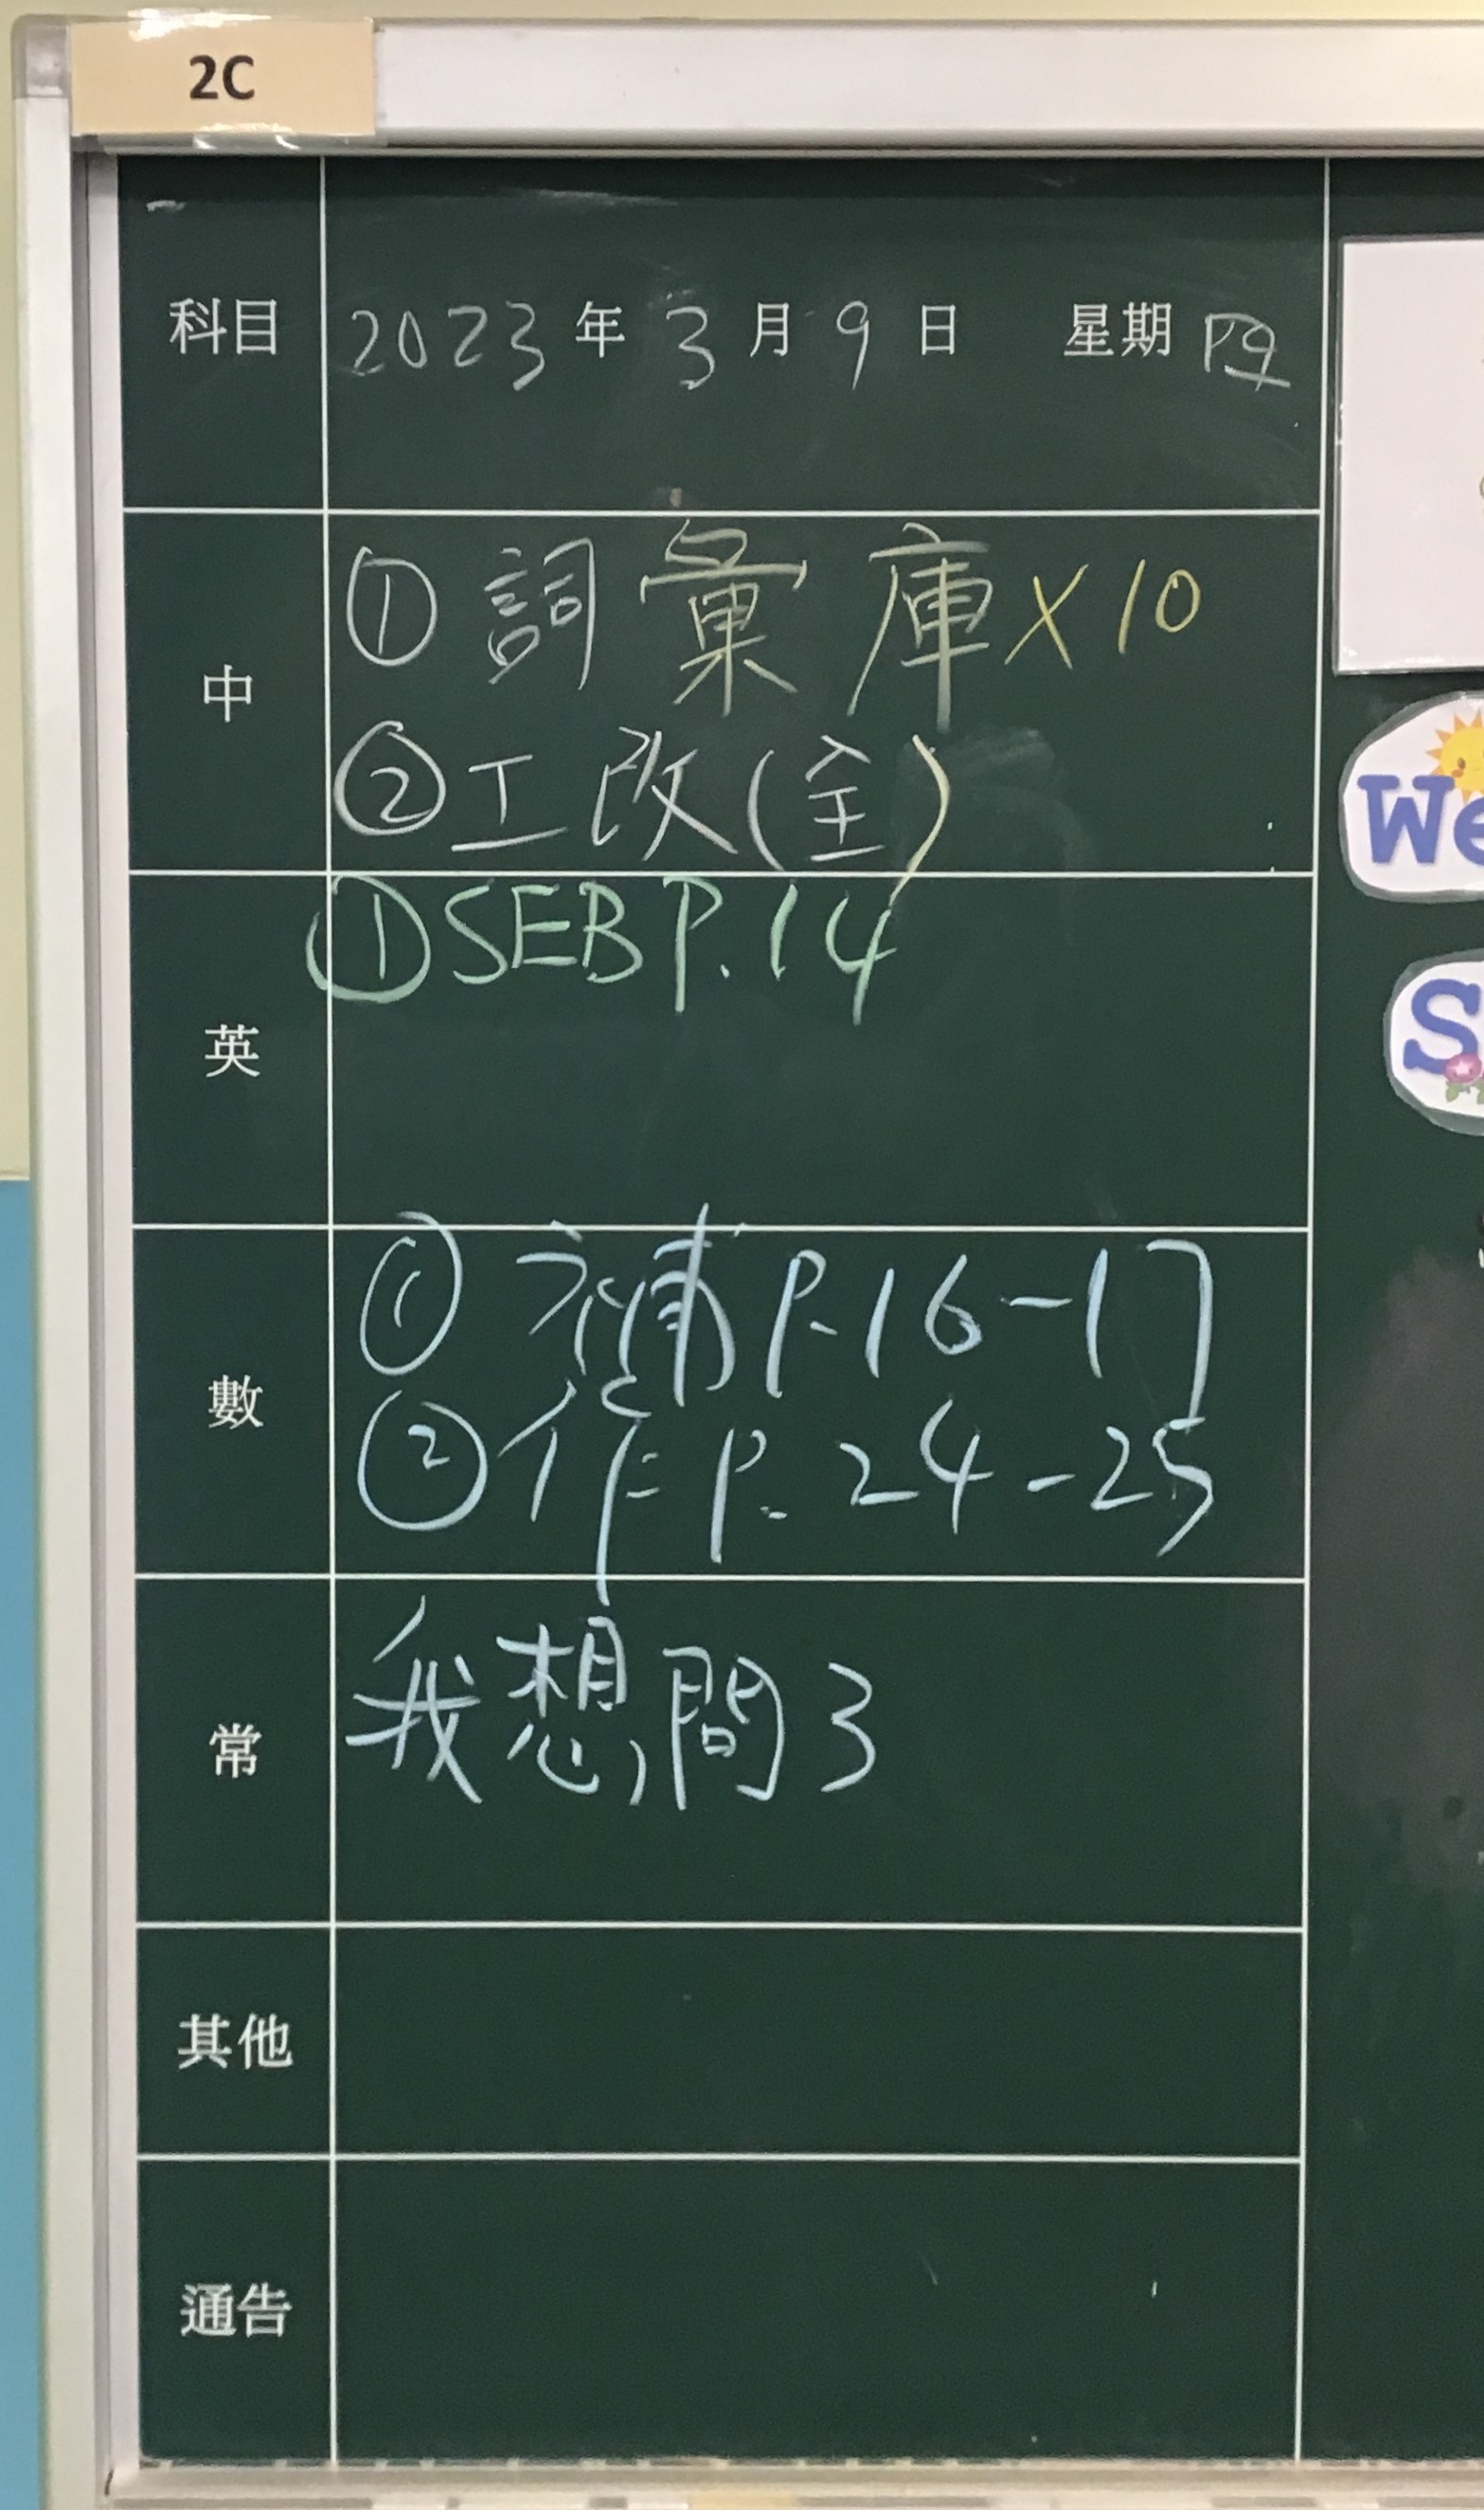 2C
科目 2023年3月9日 星期四
中
① 詞彙庫×10
② 工改(全)
英
① SEB P.14
數
① 補 P.16-17
② 作 P.24-25
常
我想,問3
其他
通告
We
S